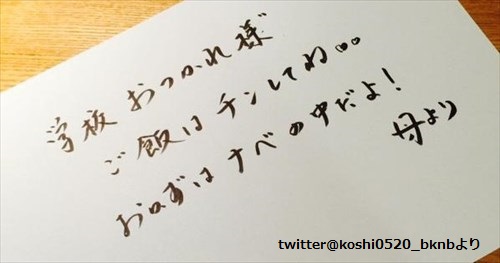 学校 おつかれ様
ご飯は チンしてね。。
おかずは ナベの中だよ！
母より
twitter@koshi0520_bknbより